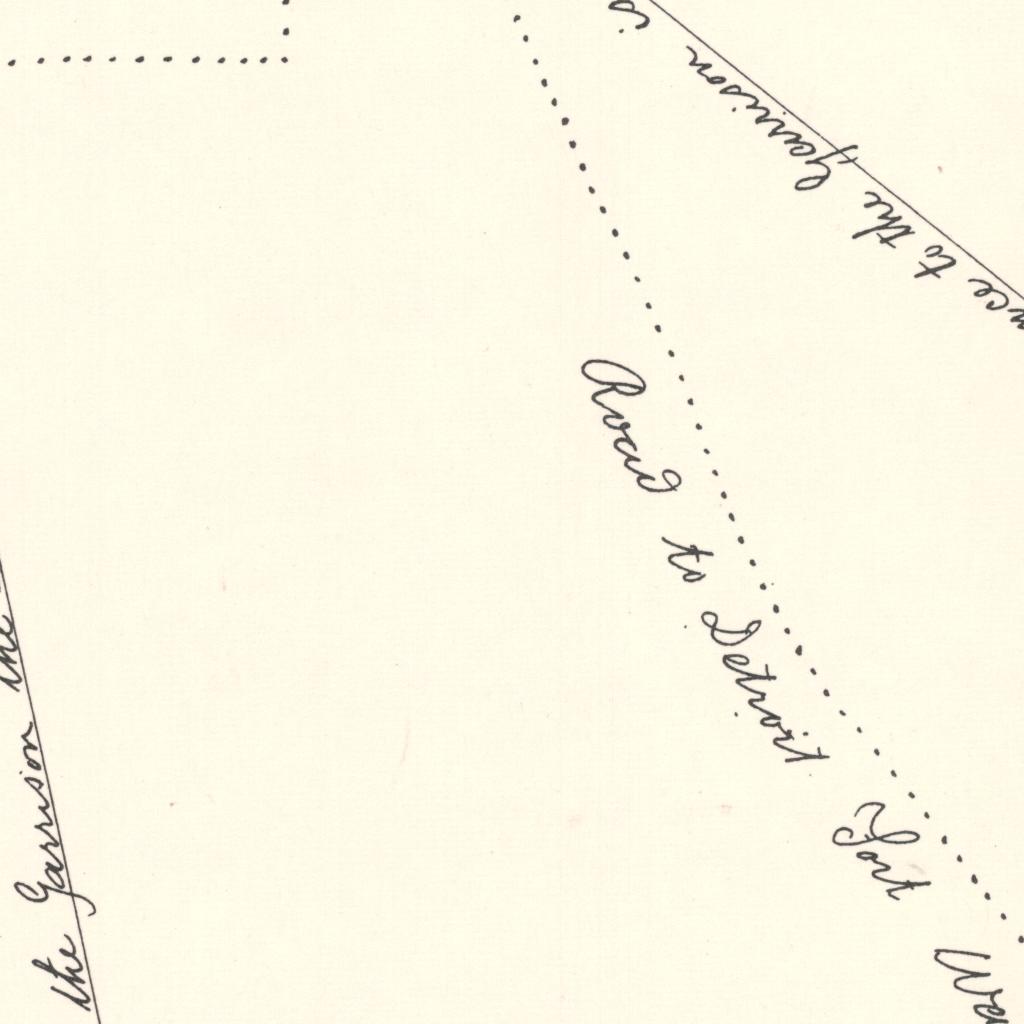 to the Garrison is
Road to Detroit Fort
the Garrison the